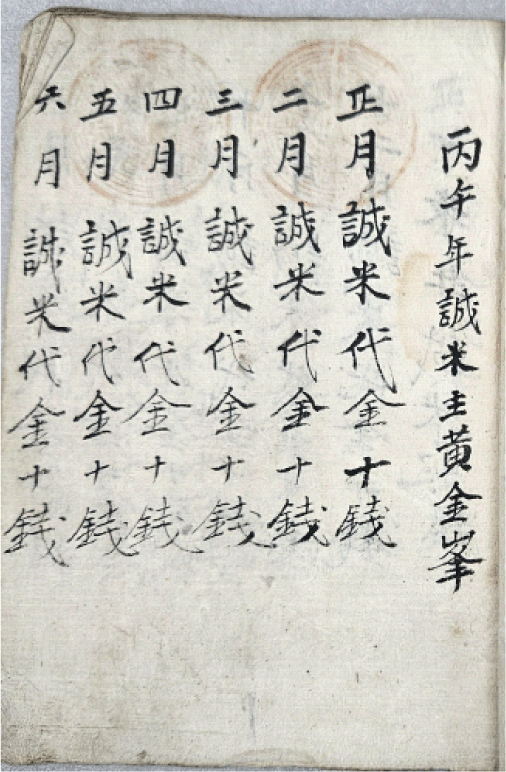 丙午年誠米主黃金峯
正月誠米代金十錢
二月誠米代金十錢
三月誠米代金十錢
四月誠米代金十錢
五月誠米代金十錢
六月誠米代金十錢